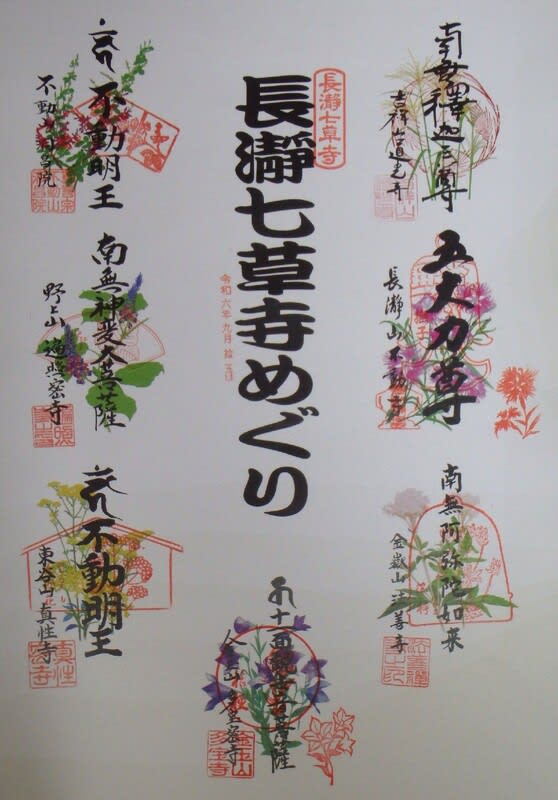 南無釋迦尊
吉祥山道光寺
五大力尊
長瀞山不動寺
南無阿弥陀如来
金嶽山法善寺
長瀞七草寺
長瀞七草寺めぐり
令和六年九月拾五日
十一面観世音菩薩
金玉山多宝密寺
不動明王
不動山洞昌院
南無神変大菩薩
野上山遍照密寺
不動明王
東谷山真性寺